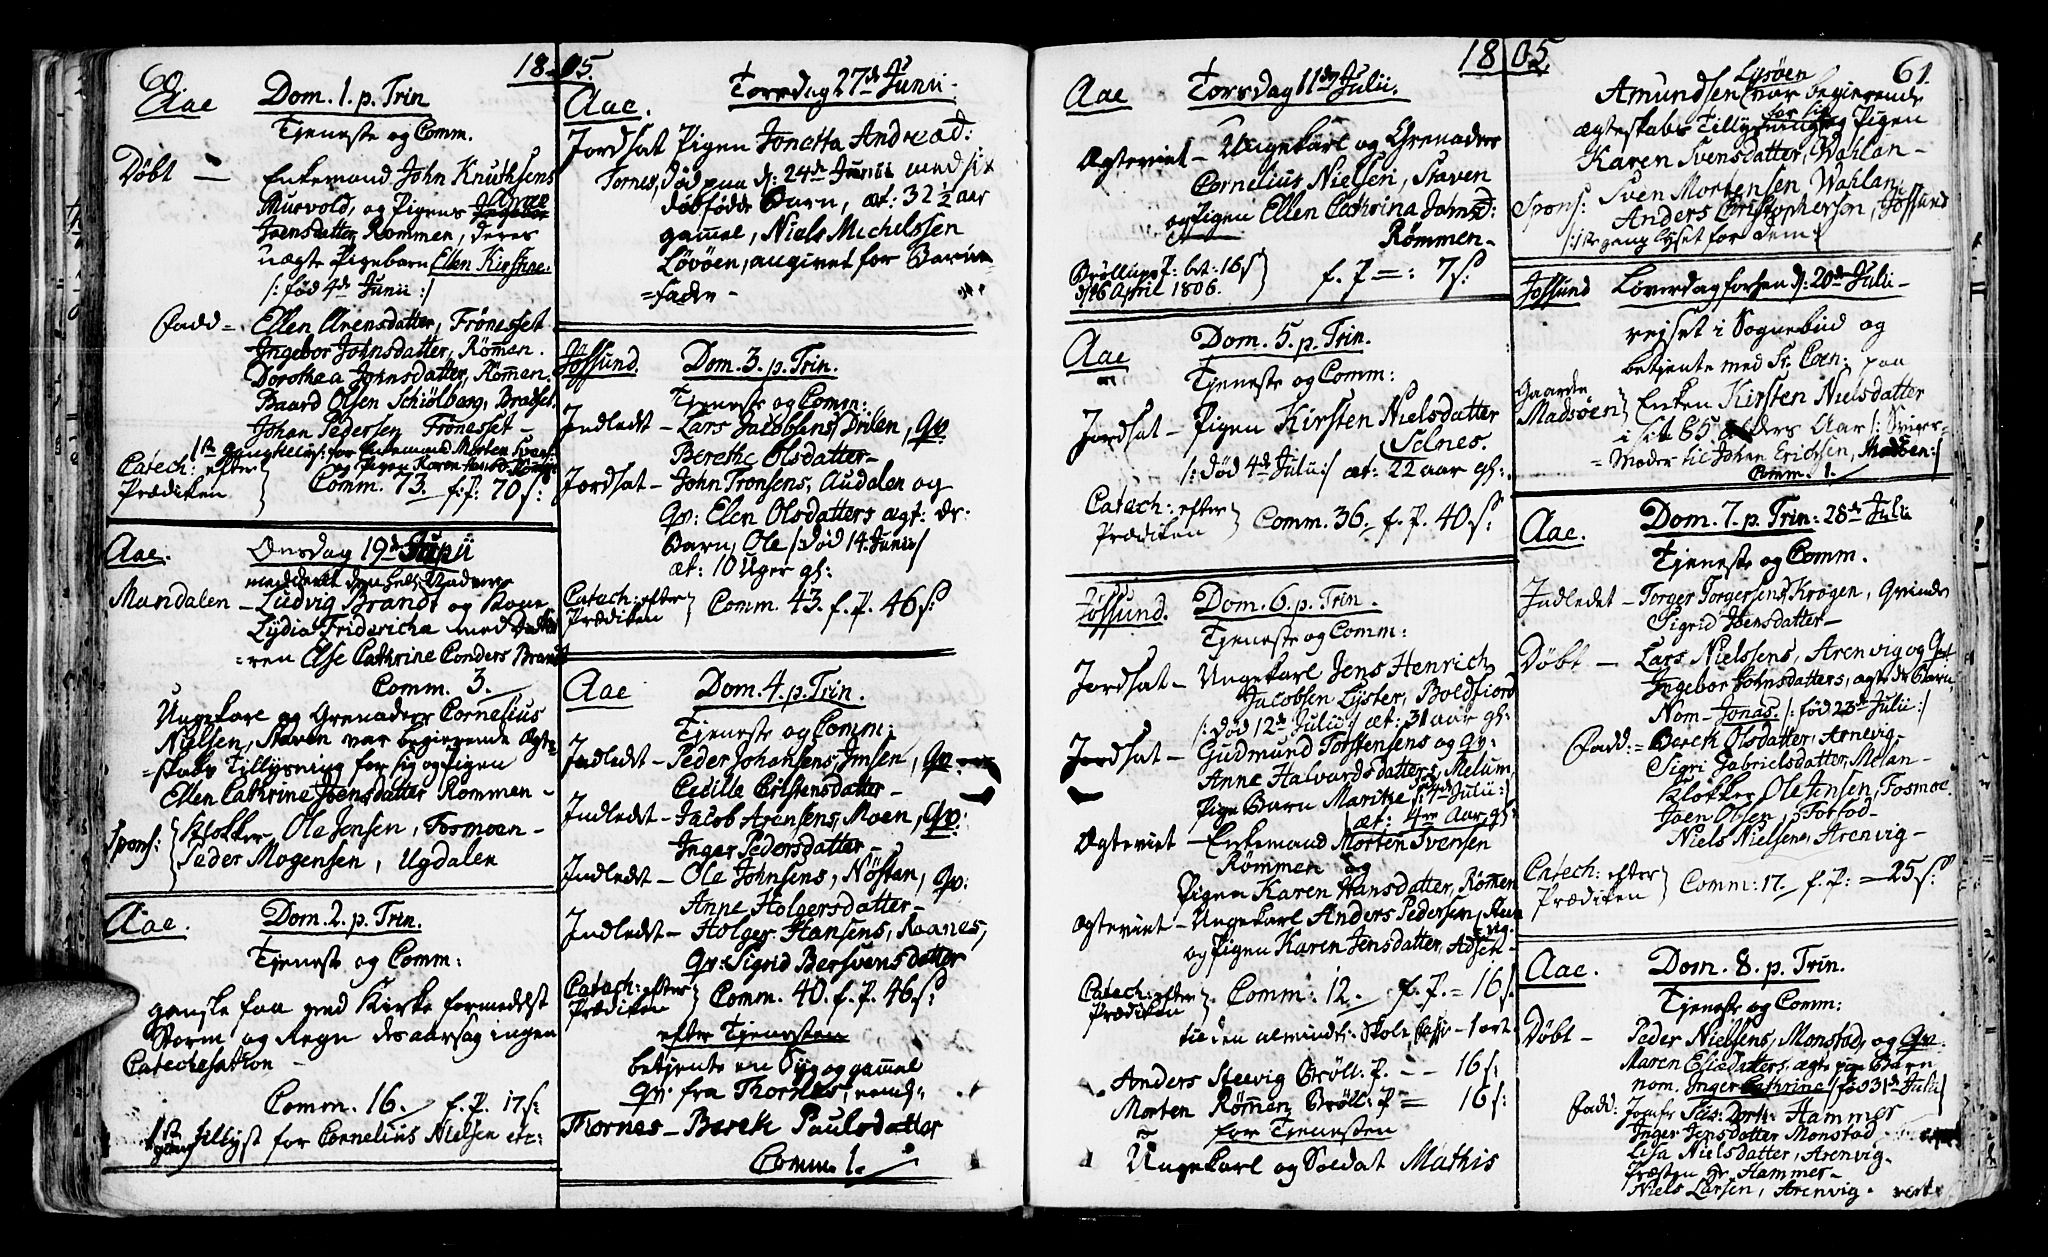 60.
1805.
Aae Dom. 1. p. Trin
Tjeneste og Comm.
Døbt — Enkemand John Knuthsens
Murvold, og Pigens Anne
Joensdatter Rømmen, deres
uægte Pigebarn Ellen Kirstine.
/: fød 4de Junii :/
Fadd = Ellen Arensdatter, Frønesset
Ingebor Johnsdatter, Rømen.
Dorothea Johnsdatter, Rømen.
Baard Olsen Schiølberg, Bradset.
Johan Pedersen Frønesset —
1ste Gang for Enkemand Morten Iversen
og Pigen Karen Hansd: Røm:
Catech: efter Prædiken } Comm. 73. f. P. 70 s:
Aae. Onsdag 19de Junii
Mandalen — Ludvig Brandt og Kone
Lydia Fridericha med Datte-
=ren Else Cathrine Conders Brandt
Comm. 3.
Ungekarl og Grenader Cornelius
Nielsen, Staven var begierende Ægte-
=skabs Tillysning for sig og Pigen
Ellen Cathrine Joensdatter Rømmen —
Spons: { Klokker Ole Jensen, Fosmoen —
Peder Mogensen, Ugdalen
Aae. Dom. 2. p. Trin.
Tjeneste og Comm:
ganske faa ved Kirke formedelst
Storm og Regn desaarsag ingen
Catechesation —
Comm. 16. f. P. 17 s:
1ste gang tillyst for Cornelius Nielsen etc:
Aae. Torsdag 27de Junii.
Jordsat Pigen Jonetta Andreæd:
Tornes, død paa d: 24de Junii med sit
dødfødde Barn, æt: 32 ½ aar
gammel, Niels Michelssen
Løvøen, angivet for Barne-
=fader —
Jøssund. Dom. 3. p. Trin.
Tjeneste og Comm:
Indledt — Lars Jacobsens, Drilen, Qv
Berethe Olsdatter —
Jordsat — John Tronsens, Audalen og
Qv: Elen Olsdatters ægt: dr:
Barn, Ole /: død 14. Junii :/
æt: 10 Uger gl:
Catech: efter Prædiken } Comm. 43. f. P. 46 s:
Aae Dom. 4. p. Trin.
Tjeneste og Comm:
Indledt — Peder Johansens, Imsen, Qv:
Cecilie Cirstensdatter —
Indledt — Jacob Arensens, Moen, Qv:
Inger Pedersdatter —
Indledt — Ole Johnsens, Nøsten, Qv:
Anne Holgersdatter —
Indledt — Holger Hansens, Raanes,
Qv: Sigrid Bersvensdatter
Catech: efter Prædiken } Comm. 40. f. P. 46 s:
efter Tjenesten
betjente en Syg og gammel
Qv: fra Thornes, nemd:
Thornes — Berek Paulsdatter
Comm. 1.
1805
61.
Aae Torsdag 11de Julii.
Ægteviet — Ungekarl og Grenader
Cornelius Nielsen, Staven
og Pigen Ellen Cathrina Johnsd:
Rømmen —
Bröllups P: bet: 16 s
d: 16 April 1806. } f. P =: 7 s:
Aae Dom. 5. p. Trin.
Tjeneste og Comm:
Jordsat — Pigen Kirsten Nielsdatter
Selnes.
/: død 4de Julii :/ æt: 22 aar gl:
Catech: efter Prædiken } Comm. 36. f. P. 40 s:
Jøssund. Dom. 6. p. Trin.
Tjeneste og Comm:
Jordsat — Ungekarl Jens Henrich
Jacobsen Lyster, Boldfiord
/: død 12de Julii :/ æt: 31 aar gl:
Jordsat — Gudmund Torstensens og Qv:
Anne Halvardsdatters, Melum,
Pige Barn Maritte /: 4de Julii :/
æt: 4re Aar gl:
Ægteviet — Enkemand Morten Iversen
Rømmen og
Pigen Karen Hansdatter, Rømen
Ægteviet — Ungekarl Anders Pedersen, Steen
=vig.
og Pigen Karen Jensdatter, Adset —
Catech: efter Prædiken } Comm: 12. f. P. = 16 s.
til den almind: Skole Casse — 1 ort.
Anders Steevig Brøll: P. — — 16 s:
Morten Rømmen Brøll: P = 16 s:
for Tjenesten
Ungekarl og Soldat Mathis
Amundsen Lysøen var begierende
Ægteskabs Tillysning for sig og Pigen
Karen Svensdatter, Wahlan —
Spons: Sven Mortensen, Wahlan
Anders Christophersen, Jøssund
/: 1ste gang lyset for dem :/
Jøssund Løverdag forhen d: 20de Julii —
rejset i Sognebud og
betjente med Sr. Coen: paa
Gaarden Madsøen } Enken Kirsten Nielsdatter
i sit 85 alders Aar /: Sviger-
=Moder til Johan Erichsen, Madsøen :/
Comm. 1.
Aae. Dom. 7. p. Trin: 28de Julii
Tjeneste og Comm.
Indledt — Torger Torgersens, Krogen, Qvinde
Sigrid Joensdatter —
Døbt — Lars Nielssens, Arenvig og Qv:
Ingebor Johnsdatters, ægte dr Barn,
Nom — Jonas. /: fød 23de Julii :/
Fadd: = Berek Olsdatter, Arnevig —
Sigri Gabrielsdatter, Melan —
Klokker Ole Jensen, Fosmoe.
Joen Olsen, Forfod —
Niels Nielsen, Arenvig —
Catech: efter Prædiken } Comm: 17. f. P: = 25 s:
Aae. Dom. 8. p. Trin.
Tjeneste og Comm:
Døbt — Peder Nielsens, Monstad, og Qv:
Maren Eliædatters ægt: pige Barn
nom. Inger Cathrine /: fød 31te Julii :/
Fadd: Jomfr Sus: Dorth: Hammer
Inger Jensdatter Monstad
Lisa Nielsdatter, Arenvig —
Præsten Hr. Hammer —
Niels Larsen, Arenvig. vert: